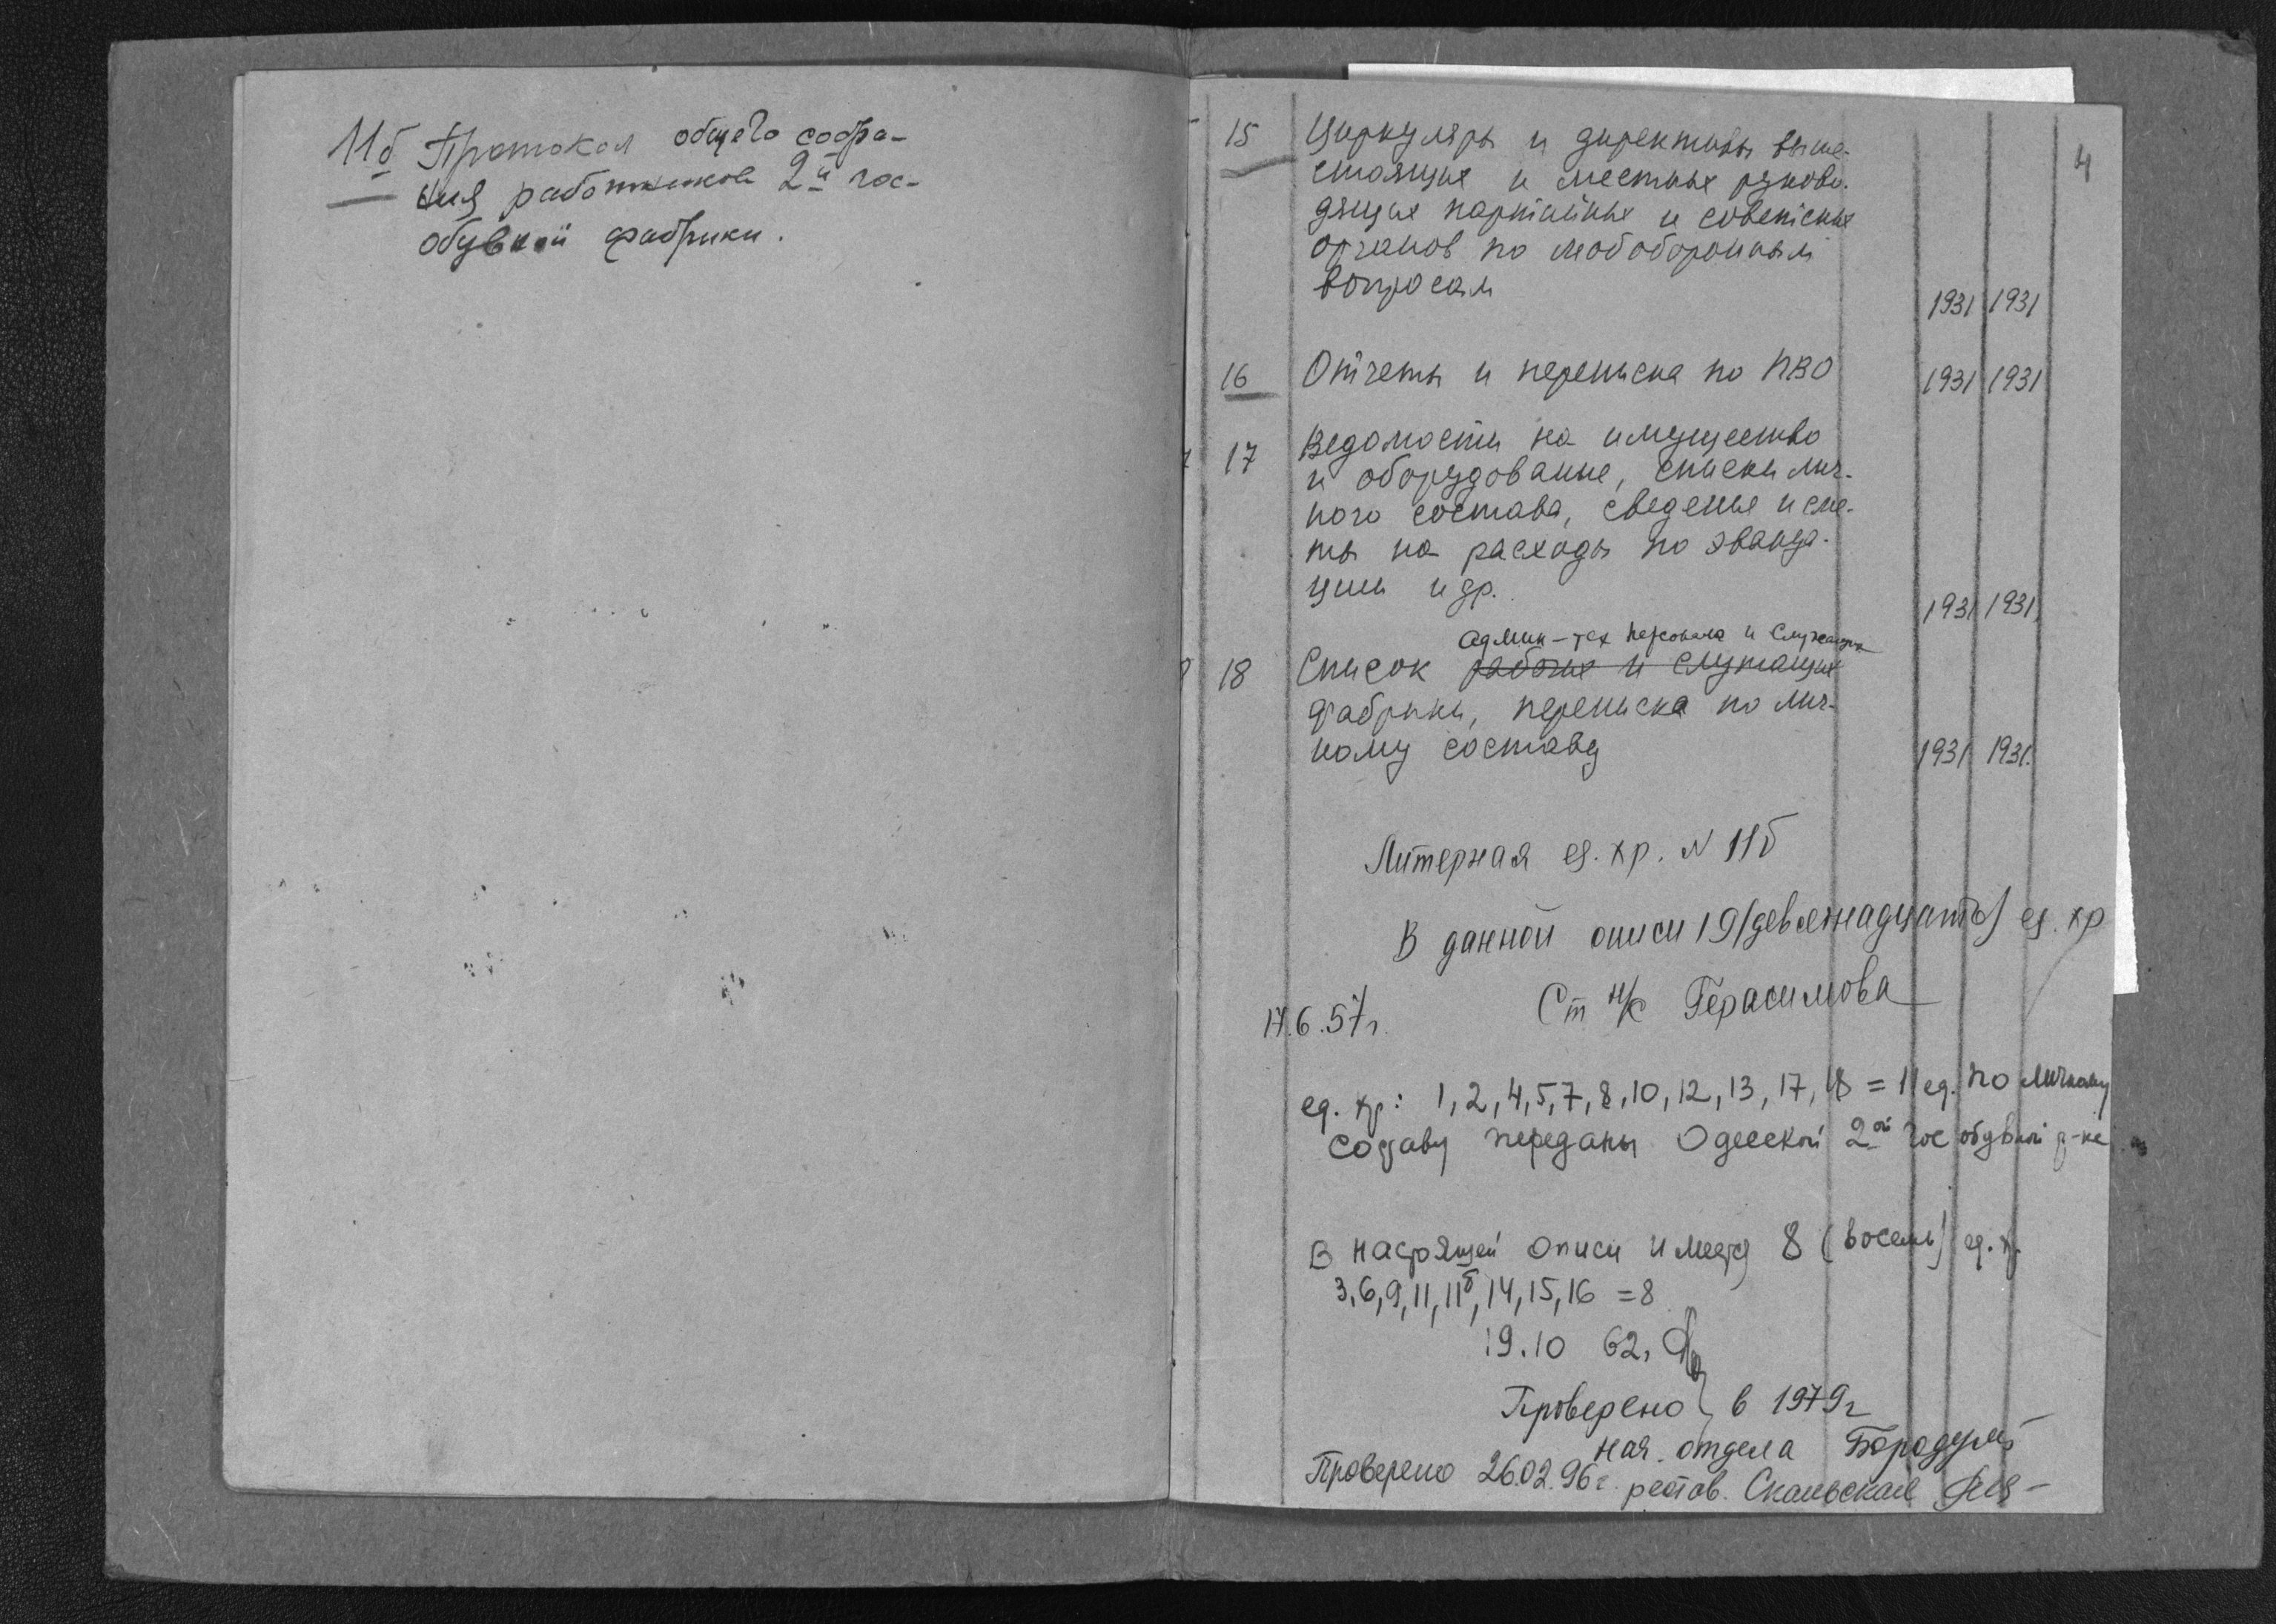 11б Протокол общего собра-
ния работников 2й гос-
обувной фабрики.
4
15 Циркуляры и директивы выше-
стоящих и местных руково-
дящих партийных и советских
органов по мобоборонным
вопросам 1931 1931
16 Отчеты и переписка по ПВО 1931 1931
17 Ведомости на имущество
и оборудование, списки лич-
ного состава, сведенья и сме-
ты на расходы по эвакуа-
ции и др. 1931 1931
админ-тех персонала и служащих
18 Список рабочих и служащих
фабрики, переписка по лич-
ному составу 1931 1931.
Литерная ед. хр. N 11б
В данной описи 19 (девятнадцать) ед. хр
Ст н/с Герасимова
17.6.57г.
ед. хр: 1,2,4,5,7,8,10,12,13,17,18 = 11 ед. по личному
составу переданы Одесской 2ой гос обувной ф-ке
В настоящей описи имеется 8 (восемь) ед. х.
3,6,9,11,11б,14,15,16 = 8
19.10 62,
Проверено в 1979г
нач. отдела
Проверено 26.02.96г. рестав. Скальская